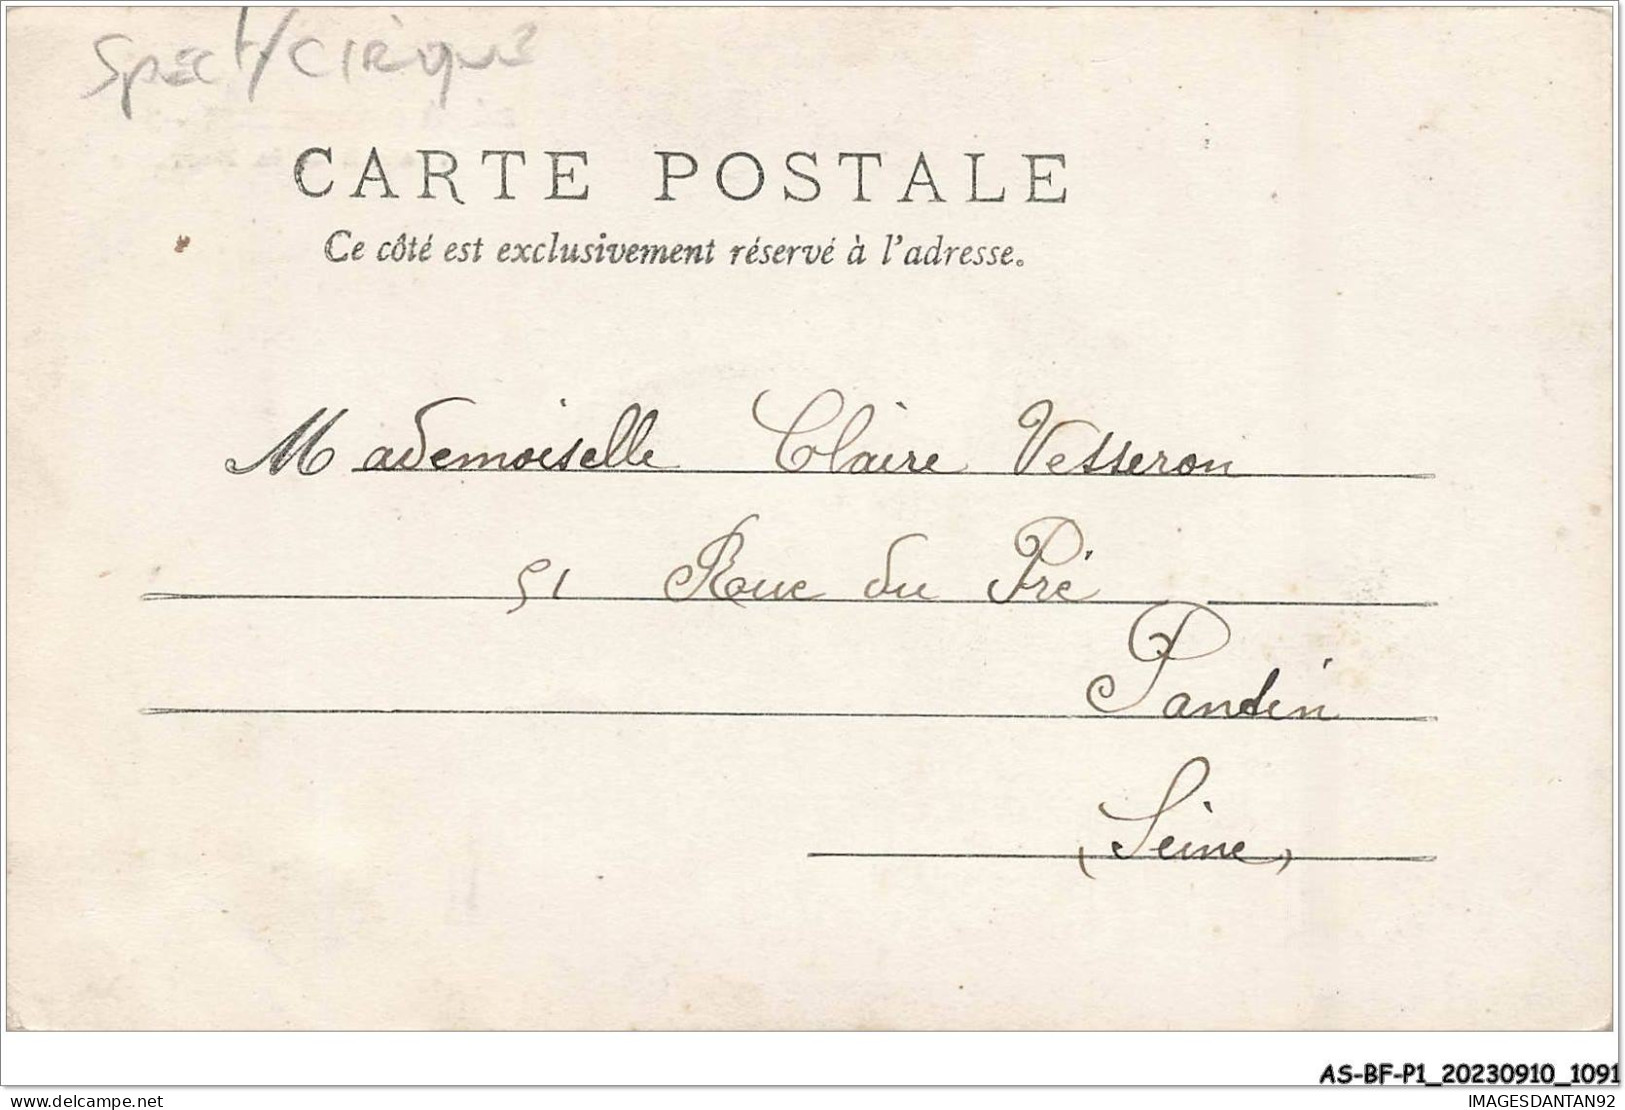 Spect/CIRque
CARTE POSTALE
Ce côté est exclusivement réservé à l'adresse.
Mademoiselle Claire Vesseron
51 Rue du Pré
Pantin
(Seine)
AS-BF-P1_20230910_1091
delcampe.net
IMAGESDANTAN92